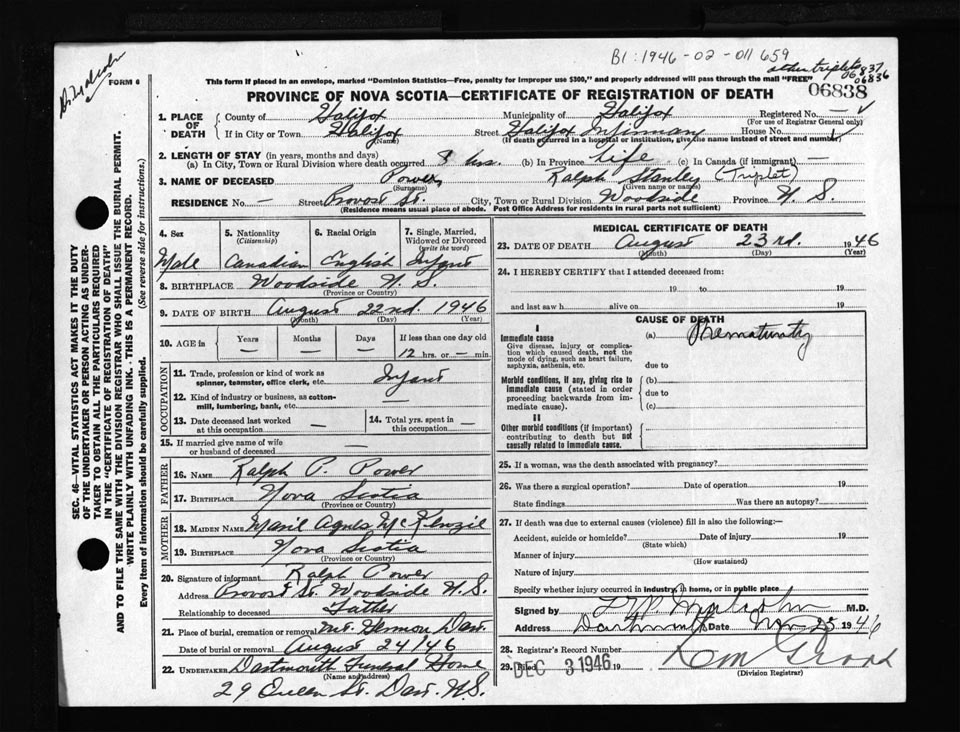 B1: 1946-02-011659
Dr. Malcolm
other triplets 06837
06836
FORM 6
This form if placed in an envelope, marked "Dominion Statistics—Free, penalty for improper use $300," and properly addressed will pass through the mail "FREE"
06838
PROVINCE OF NOVA SCOTIA—CERTIFICATE OF REGISTRATION OF DEATH
1. PLACE OF DEATH County of Halifax Municipality of Halifax Registered No. —
(For use of Registrar General only)
If in City or Town Halifax Street Halifax Infirmary House No.
(If death occurred in a hospital or institution, give the name instead of street and number)
2. LENGTH OF STAY (in years, months and days)
(a) In City, Town or Rural Division where death occurred 8 hrs. (b) In Province life (c) In Canada (if immigrant) —
3. NAME OF DECEASED Power Ralph Stanley (Triplet)
(Surname) (Given name or names)
RESIDENCE No. — Street Provost St. City, Town or Rural Division Woodside Province N. S.
(Residence means usual place of abode. Post Office Address for residents in rural parts not sufficient)
4. Sex Male
5. Nationality (Citizenship) Canadian
6. Racial Origin English
7. Single, Married, Widowed or Divorced (write the word) Infant
8. BIRTHPLACE Woodside N. S.
(Province or Country)
9. DATE OF BIRTH August 22nd. 1946
(Month) (Day) (Year)
10. AGE in Years — Months — Days — If less than one day old 12 hrs. or — min.
OCCUPATION
11. Trade, profession or kind of work as spinner, teamster, office clerk, etc. Infant
12. Kind of industry or business, as cotton-mill, lumbering, bank, etc. —
13. Date deceased last worked at this occupation —
14. Total yrs. spent in this occupation —
15. If married give name of wife or husband of deceased —
FATHER
16. NAME Ralph P. Power
17. BIRTHPLACE Nova Scotia
(Province or Country)
MOTHER
18. MAIDEN NAME Marie Agnes McKenzie
19. BIRTHPLACE Nova Scotia
(Province or Country)
20. Signature of informant Ralph Power
Address Provost St. Woodside N.S.
Relationship to deceased Father
21. Place of burial, cremation or removal Mt. Hermon Dart.
Date of burial or removal August 24/46
22. UNDERTAKER Dartmouth Funeral Home
(Name and address)
29 Queen St. Dart. N.S.
MEDICAL CERTIFICATE OF DEATH
23. DATE OF DEATH August 23rd. 1946
(Month) (Day) (Year)
24. I HEREBY CERTIFY that I attended deceased from:
19 to 19
and last saw h alive on 19
CAUSE OF DEATH
I
Immediate cause
Give disease, injury or complication which caused death, not the mode of dying, such as heart failure, asphyxia, asthenia, etc.
(a) Prematurity
due to
Morbid conditions, if any, giving rise to immediate cause (stated in order proceeding backwards from immediate cause).
(b)
due to
(c)
II
Other morbid conditions (if important) contributing to death but not causally related to immediate cause.
25. If a woman, was the death associated with pregnancy?
26. Was there a surgical operation? Date of operation 19
State findings Was there an autopsy?
27. If death was due to external causes (violence) fill in also the following:—
Accident, suicide or homicide? Date of injury 19
(State which)
Manner of injury
(How sustained)
Nature of injury
Specify whether injury occurred in industry, in home, or in public place
Signed by Malcolm M.D.
Address Dartmouth Date Nov 25 1946
28. Registrar's Record Number
29. Filed DEC 3 1946 19
(Division Registrar)
SEC. 46—VITAL STATISTICS ACT MAKES IT THE DUTY
OF THE UNDERTAKER OR PERSON ACTING AS UNDER-
TAKER TO OBTAIN ALL THE PARTICULARS REQUIRED
IN THE "CERTIFICATE OF REGISTRATION OF DEATH"
AND TO FILE THE SAME WITH THE DIVISION REGISTRAR WHO SHALL ISSUE THE BURIAL PERMIT.
WRITE PLAINLY WITH UNFADING INK. - THIS IS A PERMANENT RECORD.
Every item of information should be carefully supplied. (See reverse side for instructions.)